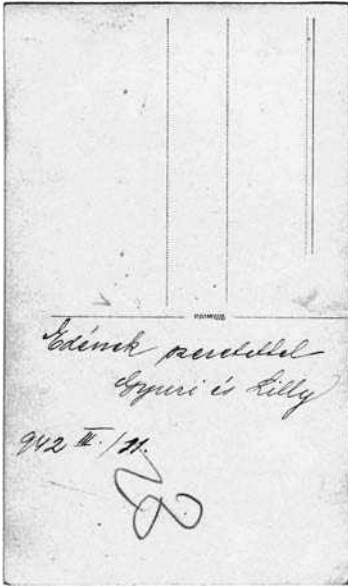 Edének szeretettel
Gyuri és Lilly
942 III./11.